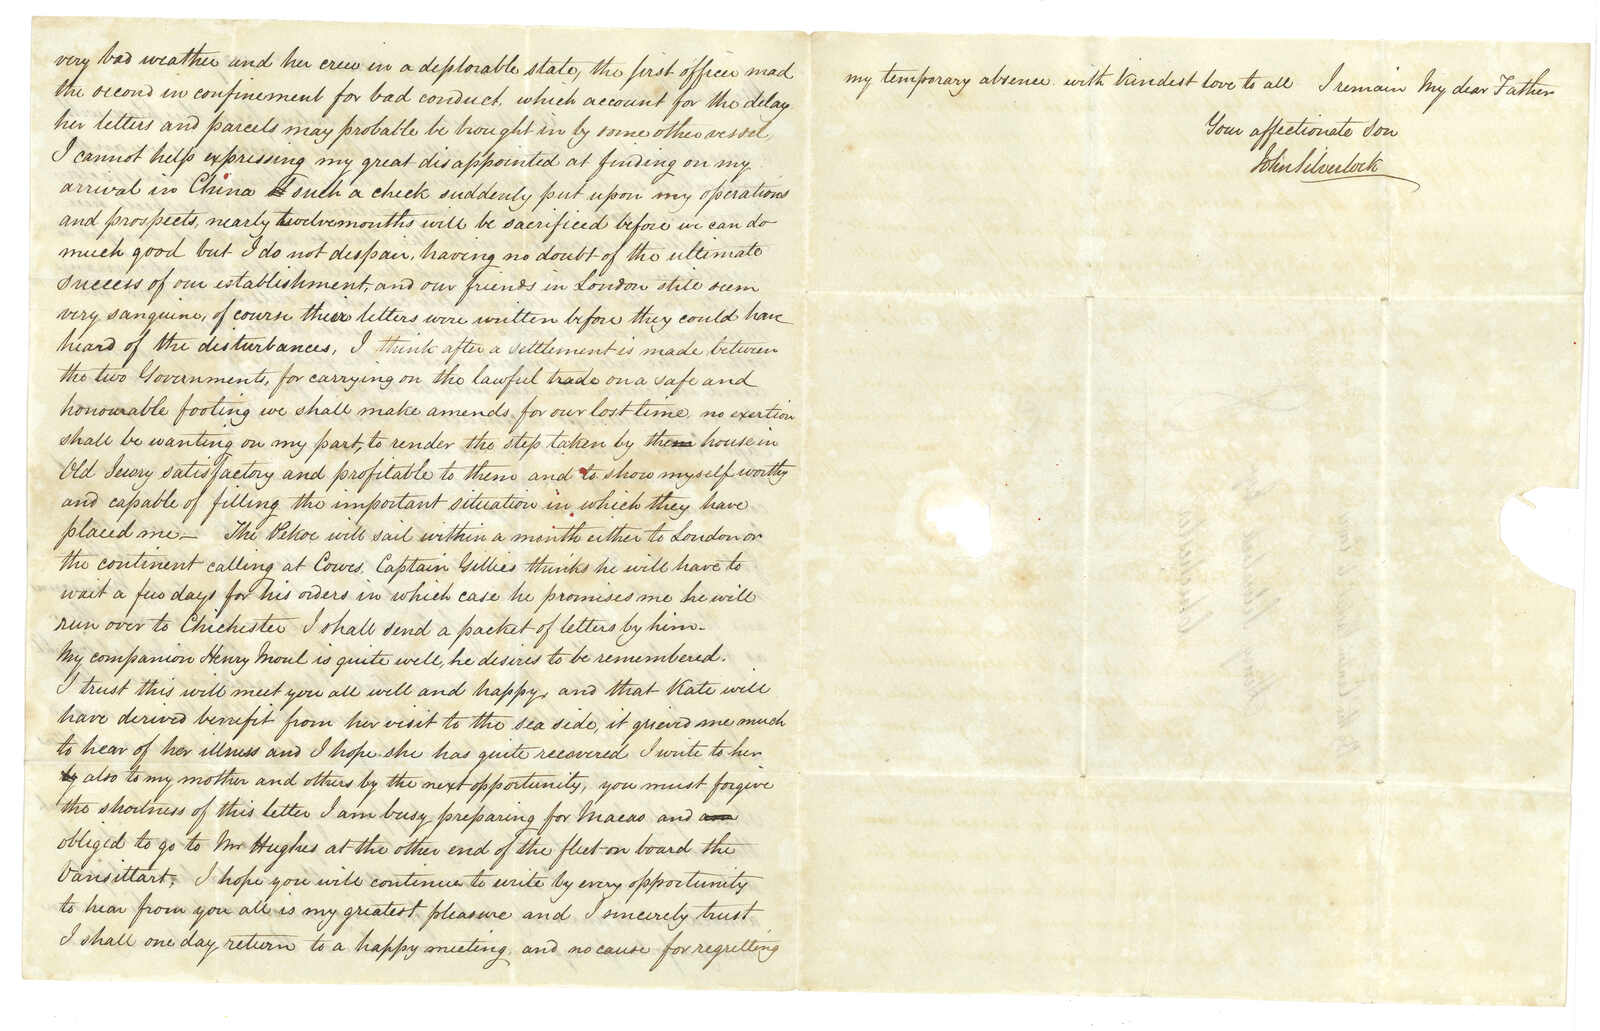 very bad weather and her crew in a deplorable state, the first officer mad
the second in confinement for bad conduct, which account for the delay
her letters and parcels may probable be brought in by some other vessel,
I cannot help expressing my great disappointed at finding on my
arrival in China such a check suddenly put upon my operations
and prospects, nearly twelvemonths will be sacrificed before we can do
much good but I do not despair, having no doubt of the ultimate
success of our establishment, and our friends in London still seem
very sanguine, of course their letters were written before they could have
heard of the disturbances, I think after a settlement is made between
the two Governments, for carrying on the lawful trade on a safe and
honourable footing we shall make amends for our lost time, no exertion
shall be wanting on my part, to render the step taken by the house in
Old Jewry satisfactory and profitable to them and to show myself worthy
and capable of filling the important situation in which they have
placed me — The Pekoe will sail within a month either to London or
the continent calling at Cowes, Captain Gillies thinks he will have to
wait a few days for his orders in which case he promises me he will
run over to Chichester I shall send a packet of letters by him —
My companion Henry Moul is quite well, he desires to be remembered.
I trust this will meet you all well and happy, and that Kate will
have derived benefit from her visit to the sea side, it grieved me much
to hear of her illness and I hope she has quite recovered I write to her
also to my mother and others by the next opportunity, you must forgive
the shortness of this letter I am busy preparing for Macao and
obliged to go to Mr Hughes at the other end of the fleet on board the
Vansittart, I hope you will continue to write by every opportunity
to hear from you all is my greatest pleasure and I sincerely trust
I shall one day return to a happy meeting, and no cause for regretting
my temporary absence with kindest love to all I remain My dear Father
Your affectionate Son
John Silverlock